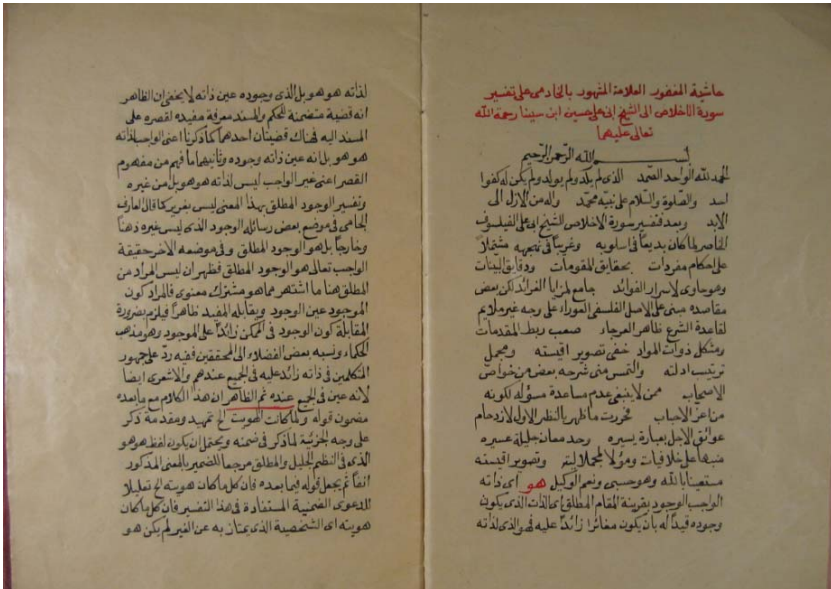 حاشية المغفور العلامة المشهور بالخادمى على تفسير
سورة الاخلاص الى الشيخ ابى على حسين ابن سينا رحمة الله
تعالى عليهما
بسم الله الرحمن الرحيم
الحمد لله الواحد الصمد الذى لم يلد ولم يولد ولم يكن له كفوا
احد والصلوة والسلام على نبيه محمد واله من الازل الى
الابد وبعد فتفسير سورة الاخلاص للشيخ ابى على الفيلسوف
لما كان بديعا فى اسلوبه وغريبا فى نهجه مشتملا
على احكام مفردات بحقايق المقومات ودقايق البينات
وهو حاوى لاسرار الفوائد جامع لمزايا الفرائد لكن بعض
مقاصده مبنى على الاصل الفلسفى العوراء على وجه غير ملايم
لقاعدة الشرع ظاهر العرجاء صعب ربط المقدمات
ومشكل ذوات المواد خفى تصوير اقيسته ومجمل
ترتيب ادلته والتمس منى شرحه بعض من خواص
الاصحاب ممن لا ينبغى عدم مساعدة مسؤله لكونه
من اعز الاحباب فحررت ما ظهر بالنظر الاول لازدحام
عوائق الاجل بعبارة يسيره وحد معان جليلة عسيره
منبها على خلافيات ومؤلا لمجملا ليته وتصوير اقيسته
مستعينا بالله وهو حسبى ونعم الوكيل هو اى ذاته
الواجب الوجود بقرينة المقام المطلق اى الذات الذى يكون
وجوده قيدا له بان يكون مغائرا زائدا عليه فهو الذى لذاته
لذاته هو هو بل الذى وجوده عين ذاته لا يخفى ان الظاهر
انه قضية متضمنة للحكم والمسند معرفة مفيده لقصره على
المسند اليه فهناك قضيتان احدهما كما ذكرنا اعنى الواجب لذاته
هو هو بل انه عين ذاته وجوده وثانيهما ما فهم من مفهوم
القصر اعنى غير الواجب ليس لذاته هو هو بل من غيره
وتفسير الوجود المطلق بهذا المعنى ليس بغرير كما قال العارف
الجامى فى موضع بعض رسائله الوجود الذى ليس غيره ذهنا
وخارجا بل هو الوجود المطلق وفى موضعه الاخر حقيقة
الواجب تعالى هو الوجود المطلق فظهر ان ليس المراد من
المطلق هنا ما اشتهر مما هو مشترك معنوى فالمراد كون
الموجود عين الوجود ويقابله المقيد ظاهرا فيلزم بضرورة
المقابلة كون الوجود فى الممكن زائدا على الموجود وهو مذهب
الحكماء ونسبه بعض الفضلاء الى المحققين ففيه رد على جمهور
المتكلمين فى ذاته زائد عليه فى الجميع عندهم والاشعرى ايضا
لانه عين فى الجميع عنده ثم الظاهر ان هذا الكلام مع ما بعده
مضمون قوله ولما كانت الهوية الخ تمهيد ومقدمة ذكر
على وجه الجزئية لما ذكر فى ضمنه ويحتمل ان يكون لفظ هو هو
الذى فى النظم الجليل والمطلق مرجعا للضمير بالمعنى المذكور
انفا ثم يجعل قوله فيما بعده فان كل ما كان هويته الخ تعليلا
للدعوى الضمنية المستفادة فى هذا التفسير فان كل ما كان
هويته اى الشخصية الذى يمتاز به عن الغير لم يكن هو